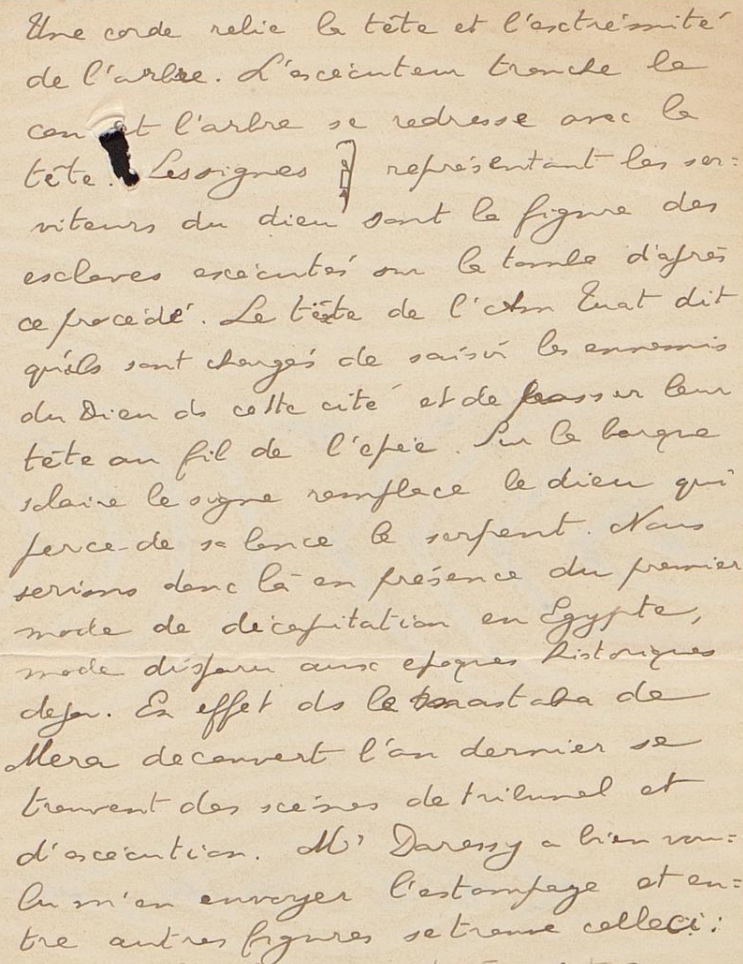 Une corde relie la tête et l'extrémité
de l'arbre. L'exécuteur tranche le
cou et l'arbre se redresse avec la
tête. Les signes représentant les ser=
viteurs du dieu sont la figure des
esclaves exécutés sur la tombe d'après
ce procédé. Le texte de l'Am Tuat dit
qu'ils sont chargés de saisir les ennemis
du Dieu ds cette cité et de passer leur
tête au fil de l'épée. Sur la barque
solaire le signe remplace le dieu qui
perce de sa lance le serpent. Nous
serions donc là en présence du premier
mode de décapitation en Egypte,
mode disparu aux epoques historiques
deja. En effet ds le mastaba de
Mera decouvert l'an dernier se
trouvent des scènes de tribunal et
d'exécution. Mr Daressy a bien vou=
lu m'en envoyer l'estampage et en=
tre autres figures se trouve celle ci: